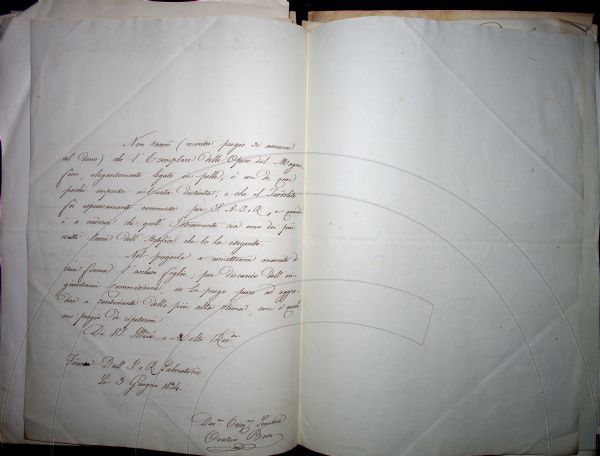 Non tacerò (mentre pregio si accresce
al dono) che l'Esemplare delle Opere del Magni-
fico, elegantemente legato in pelle, è un de que'
pochi impressi in Carta distinta, e che il Teodolite
fù espressamente commesso per S. A. I. e R., e quindi
è a credersi che quell'Istrumento sia uno dei più
esatti lavori dell'Artefice che lo ha eseguito.
Nel pregarla a rimettermi munito di
sua firma l'accluso foglio per discarico dell'in-
giuntami Commissione, io la prego pure ad aggra-
dire i sentimenti della più alta stima, con i quali
mi pregio di ripetermi
Di V. Illma e Molto Revda
Firenze Dall' I. e R. Laboratorio
Li 3 Giugno 1834.
Dev.mo Obb.mo Servitore